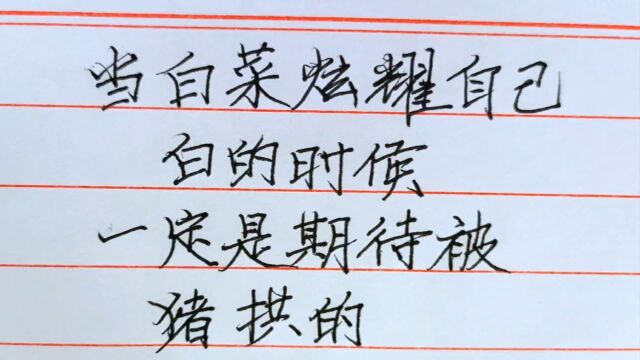 当白菜炫耀自己
白的时候
一定是期待被
猪拱的